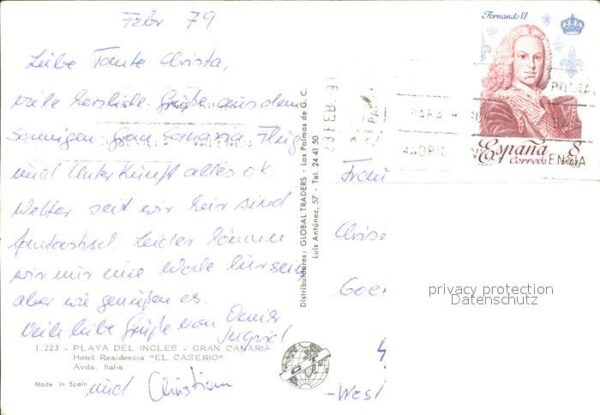 Febr 79
Liebe Tante Christa,
viele herzliche Grüße aus dem
Sonnigen Gran Canaria. Flug
und Unterkunft alles ok.
Wetter seit wir hier sind
fantastisch. Leider können
wir nur eine Woche hier sein
aber wir genießen es.
Viele liebe Grüße von
Ingrid
und Christian
1.223 - PLAYA DEL INGLES - GRAN CANARIA
Hotel Residencia "EL CASERIO"
Avda. Italia.
Made in Spain
Distribuidores: GLOBAL TRADERS - Las Palmas de G. C.
Luis Antúnez, 57 - Tel. 24 41 50
Fernando VI
España
Correos
8
PARA
Frau
Goe
-West
privacy protection
Datenschutz